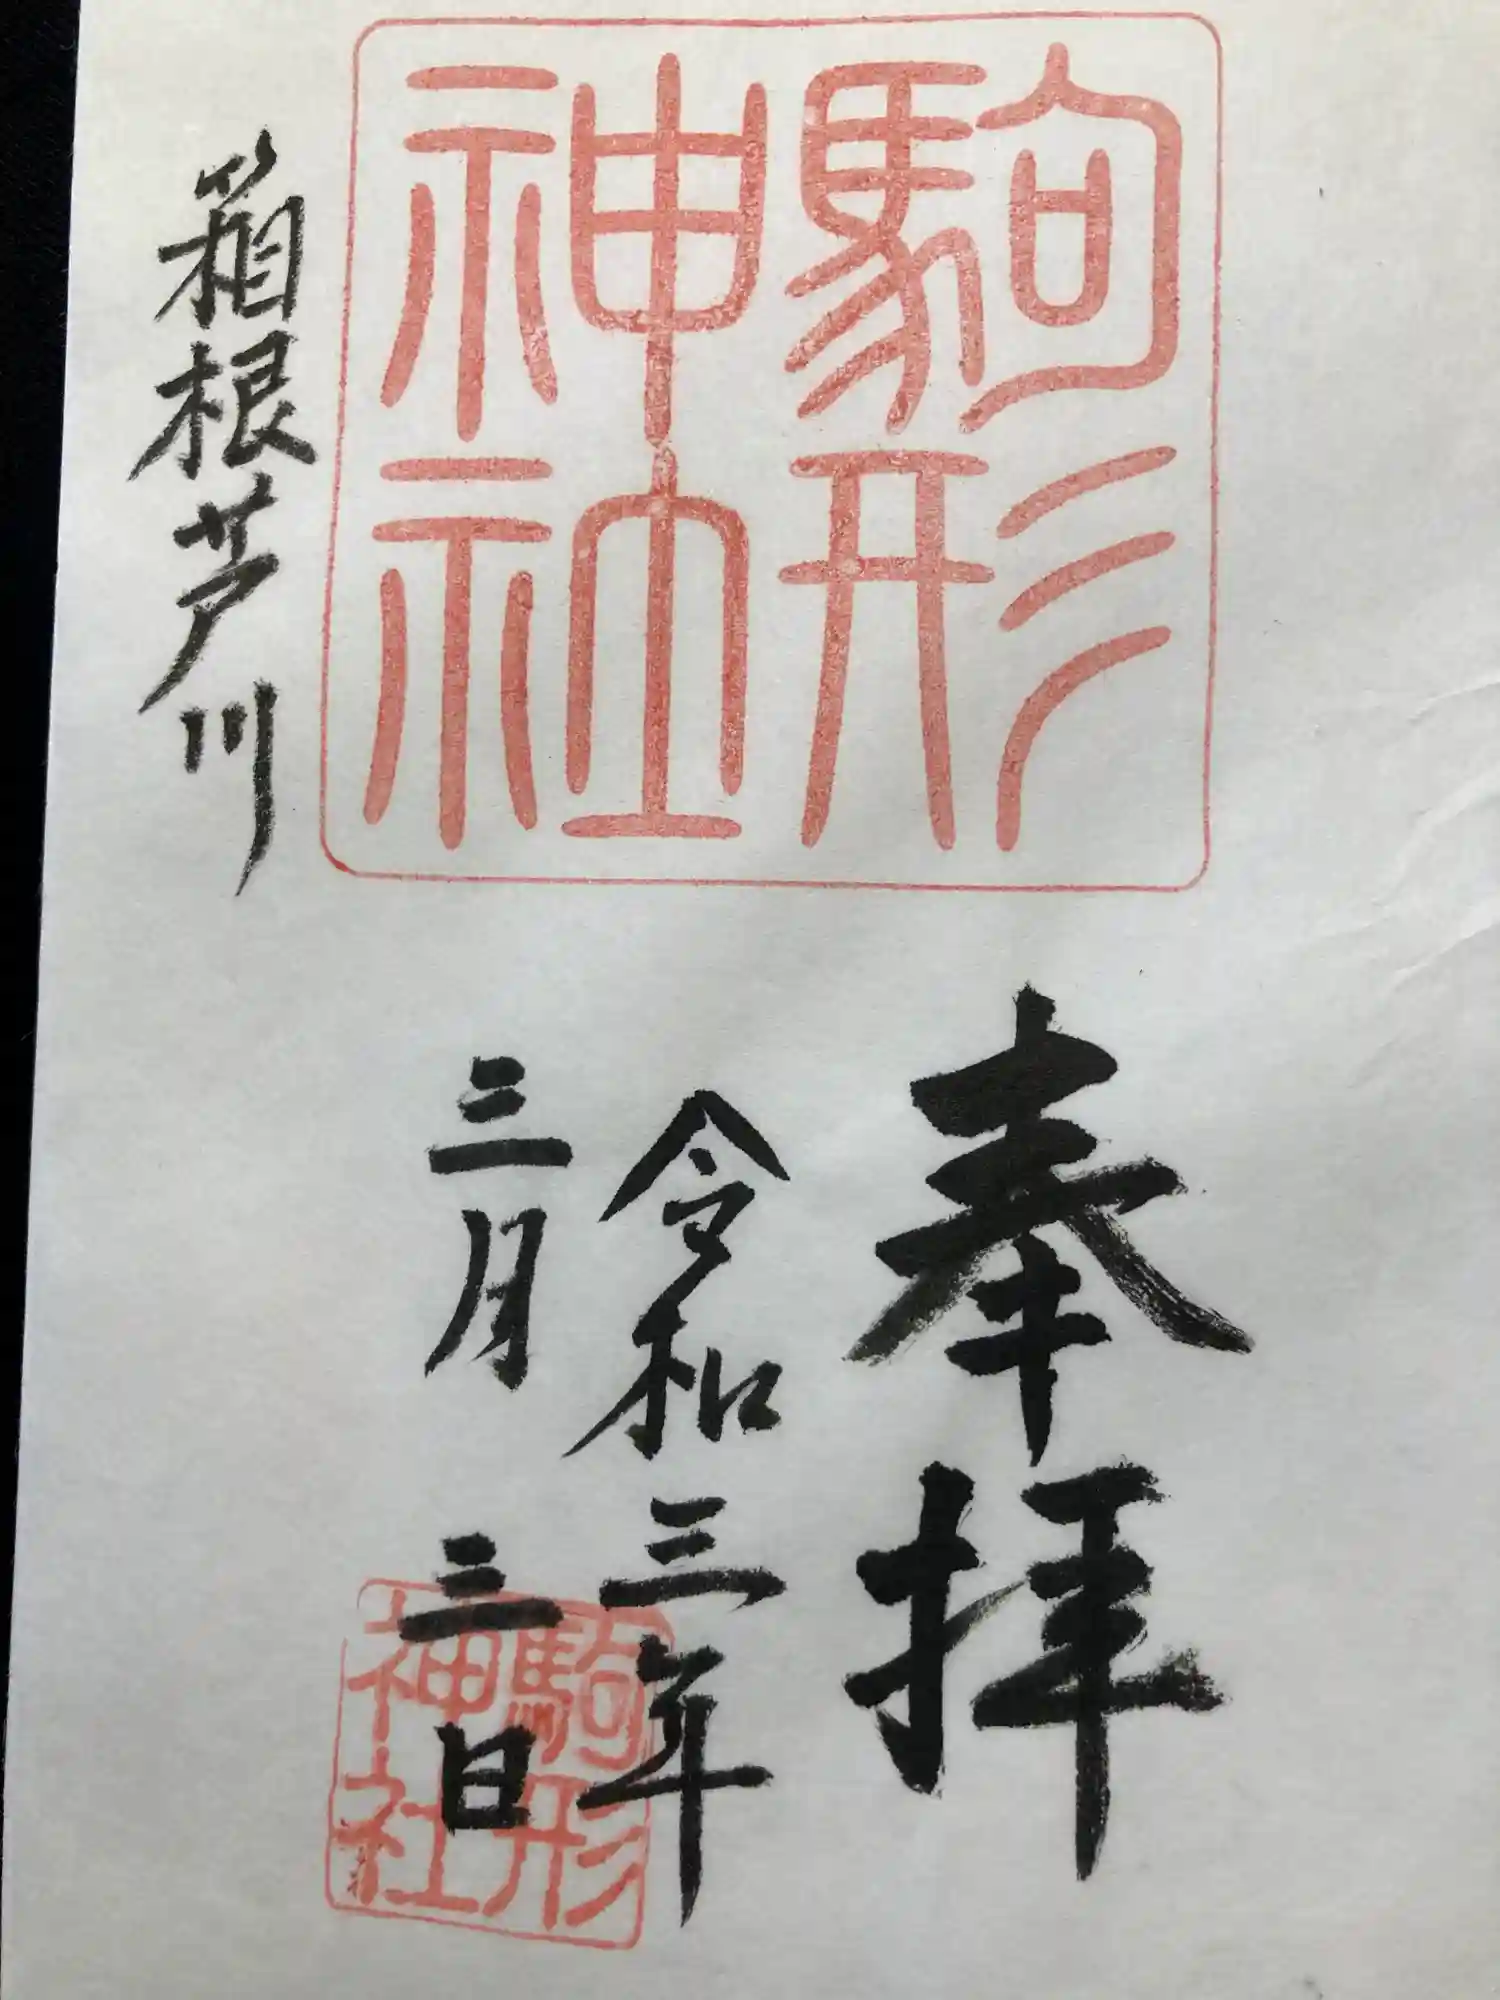 駒形
神社
箱根芦川
奉拝
令和三年
三月三日
駒形
神社